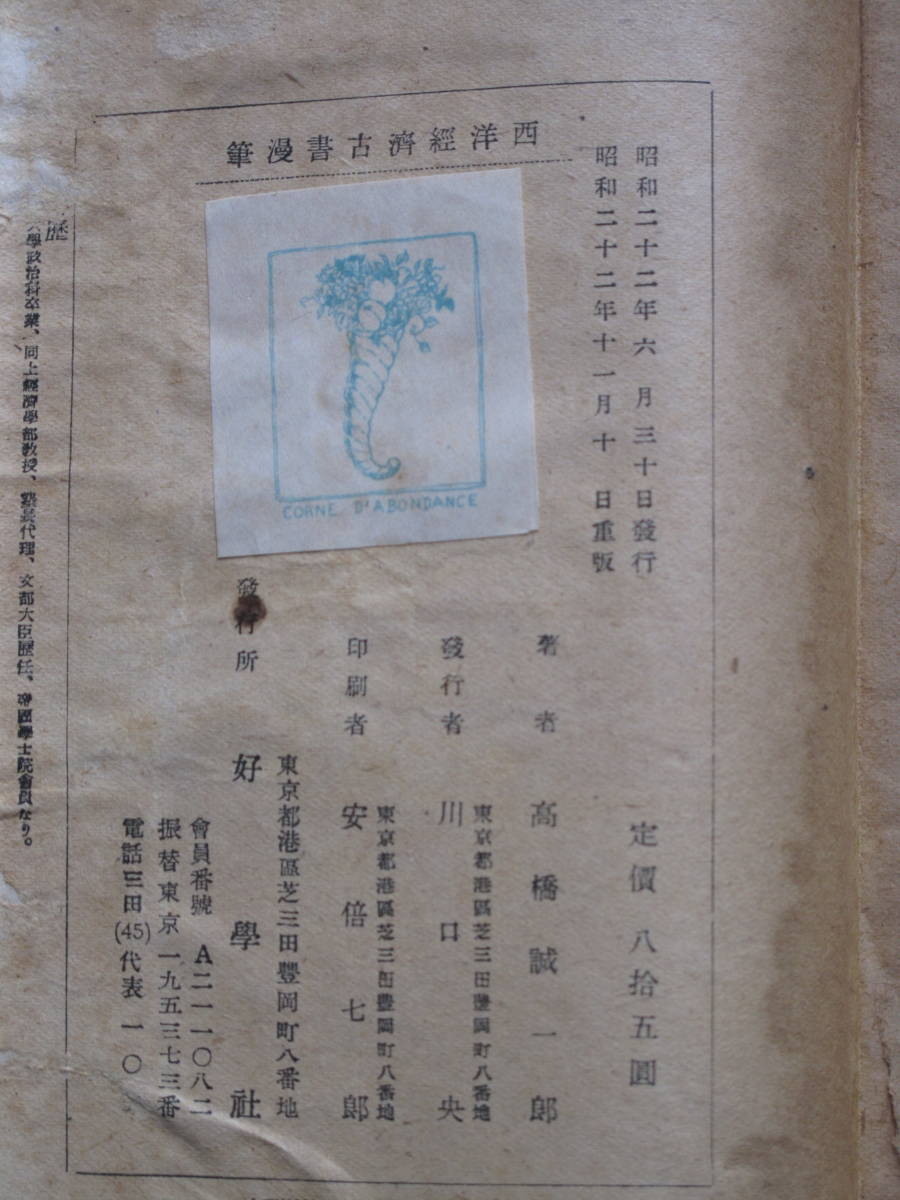 西洋經濟古書漫筆
昭和二十二年六月三十日發行
昭和二十二年十一月十日重版
CORNE D'ABONDANCE
定價 八拾五圓
著者 高橋誠一郎
東京都港區芝三田豐岡町八番地
發行者 川口央
東京都港區芝三田豐岡町八番地
印刷者 安倍七郎
東京都港區芝三田豐岡町八番地
發行所 好學社
會員番號 A二一一〇八二
振替東京 一九五三七三番
電話三田(45)代表 一〇
歷
學政治科卒業、同上經濟學部教授、塾長代理、文部大臣歷任、帝國學士院會員なり。